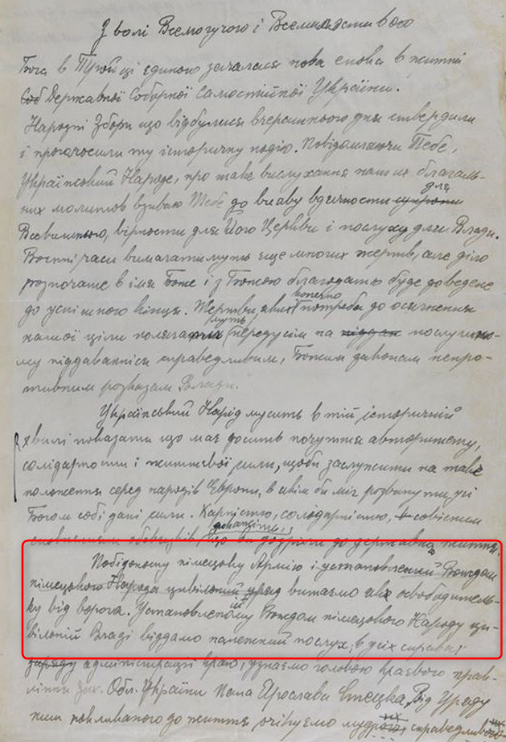 З волі Всемогучого і Всемилостивого
Бога в Тройці єдиного зачалася нова епоха в житті
Соб Державної Соборної Самостійної України.
Народні Збори що відбулися вчерашнього дня ствердили
і проголосили ту історичну подію. Повідомляючи Тебе,
Український Народе, про таке вислухання наших благаль-
для
них молитов взиваю Тебе до вияву вдячности
Всевишнього, вірности для Його Церкви і послуху для Влади.
Воєнні часи вимагатимуть ще многих жертв, але діло
розпочате в імя Боже і з Божою благодаттю буде доведене
до успішного кінця. Жертви яких конечно потреба до осягнення
нашої ціли полягатимуть передусім на послушно-
му піддаванні справедливим, Божим законам непро-
тивним розказам Влади.
Український Нарід мусить в тій історичній
хвилі показати що має досить почуття авторитету,
солідарности і життєвої сили, щоби заслужити на таке
положення серед народів Европи, в якім би міг розвинути усі
Богом собі дані сили. Карністю, солідарністю, совісним
сповненням обовязків докажіть що ви дозріли до державного життя.
Побідоносну німецьку Армію і установлений Вождом
німецького Народа цивільний уряд витаємо як освободитель-
ку від ворога. Установленому Вождом німецького Народу ци-
вільній Владі віддамо належний послух, в усіх справах
заряду адміністрації краю, узнаємо головою краєвого прав-
ління Зах. Обл. України Пана Ярослава Стецька. Від Уряду
ним покликаного до життя очікуємо мудрого, справедливого